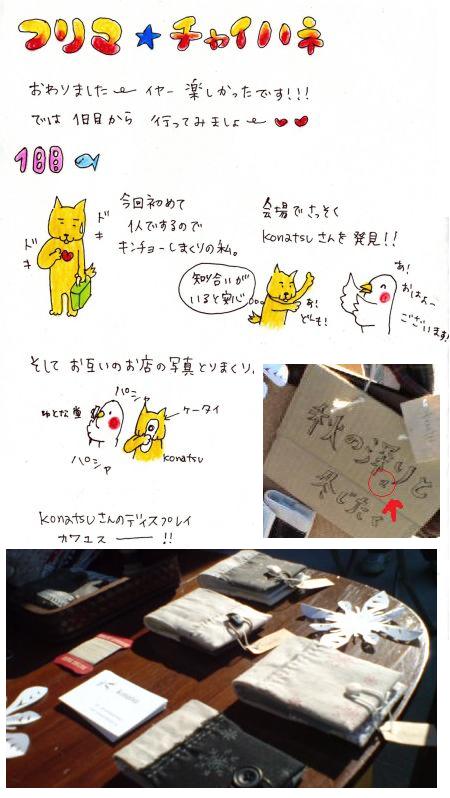 フリマ★チャイハネ
おわりました～ イヤー 楽しかったです!!!
では 1日目から 行ってみましょ～♥♥
1日目
ドキ
ドキ
今回初めて
1人でするので
キンチョーしまくりの私。
会場でさっそく
konatsuさんを発見!!
知合いが
いると安心
あ!
どーも!
あ!
おはよー
ございます!
そして お互いのお店の写真とりまくり。
パシャ
パシャ
ケータイ
konatsu
秋の深りと
冬じたく
konatsuさんのディスプレイ
カワユス――!!